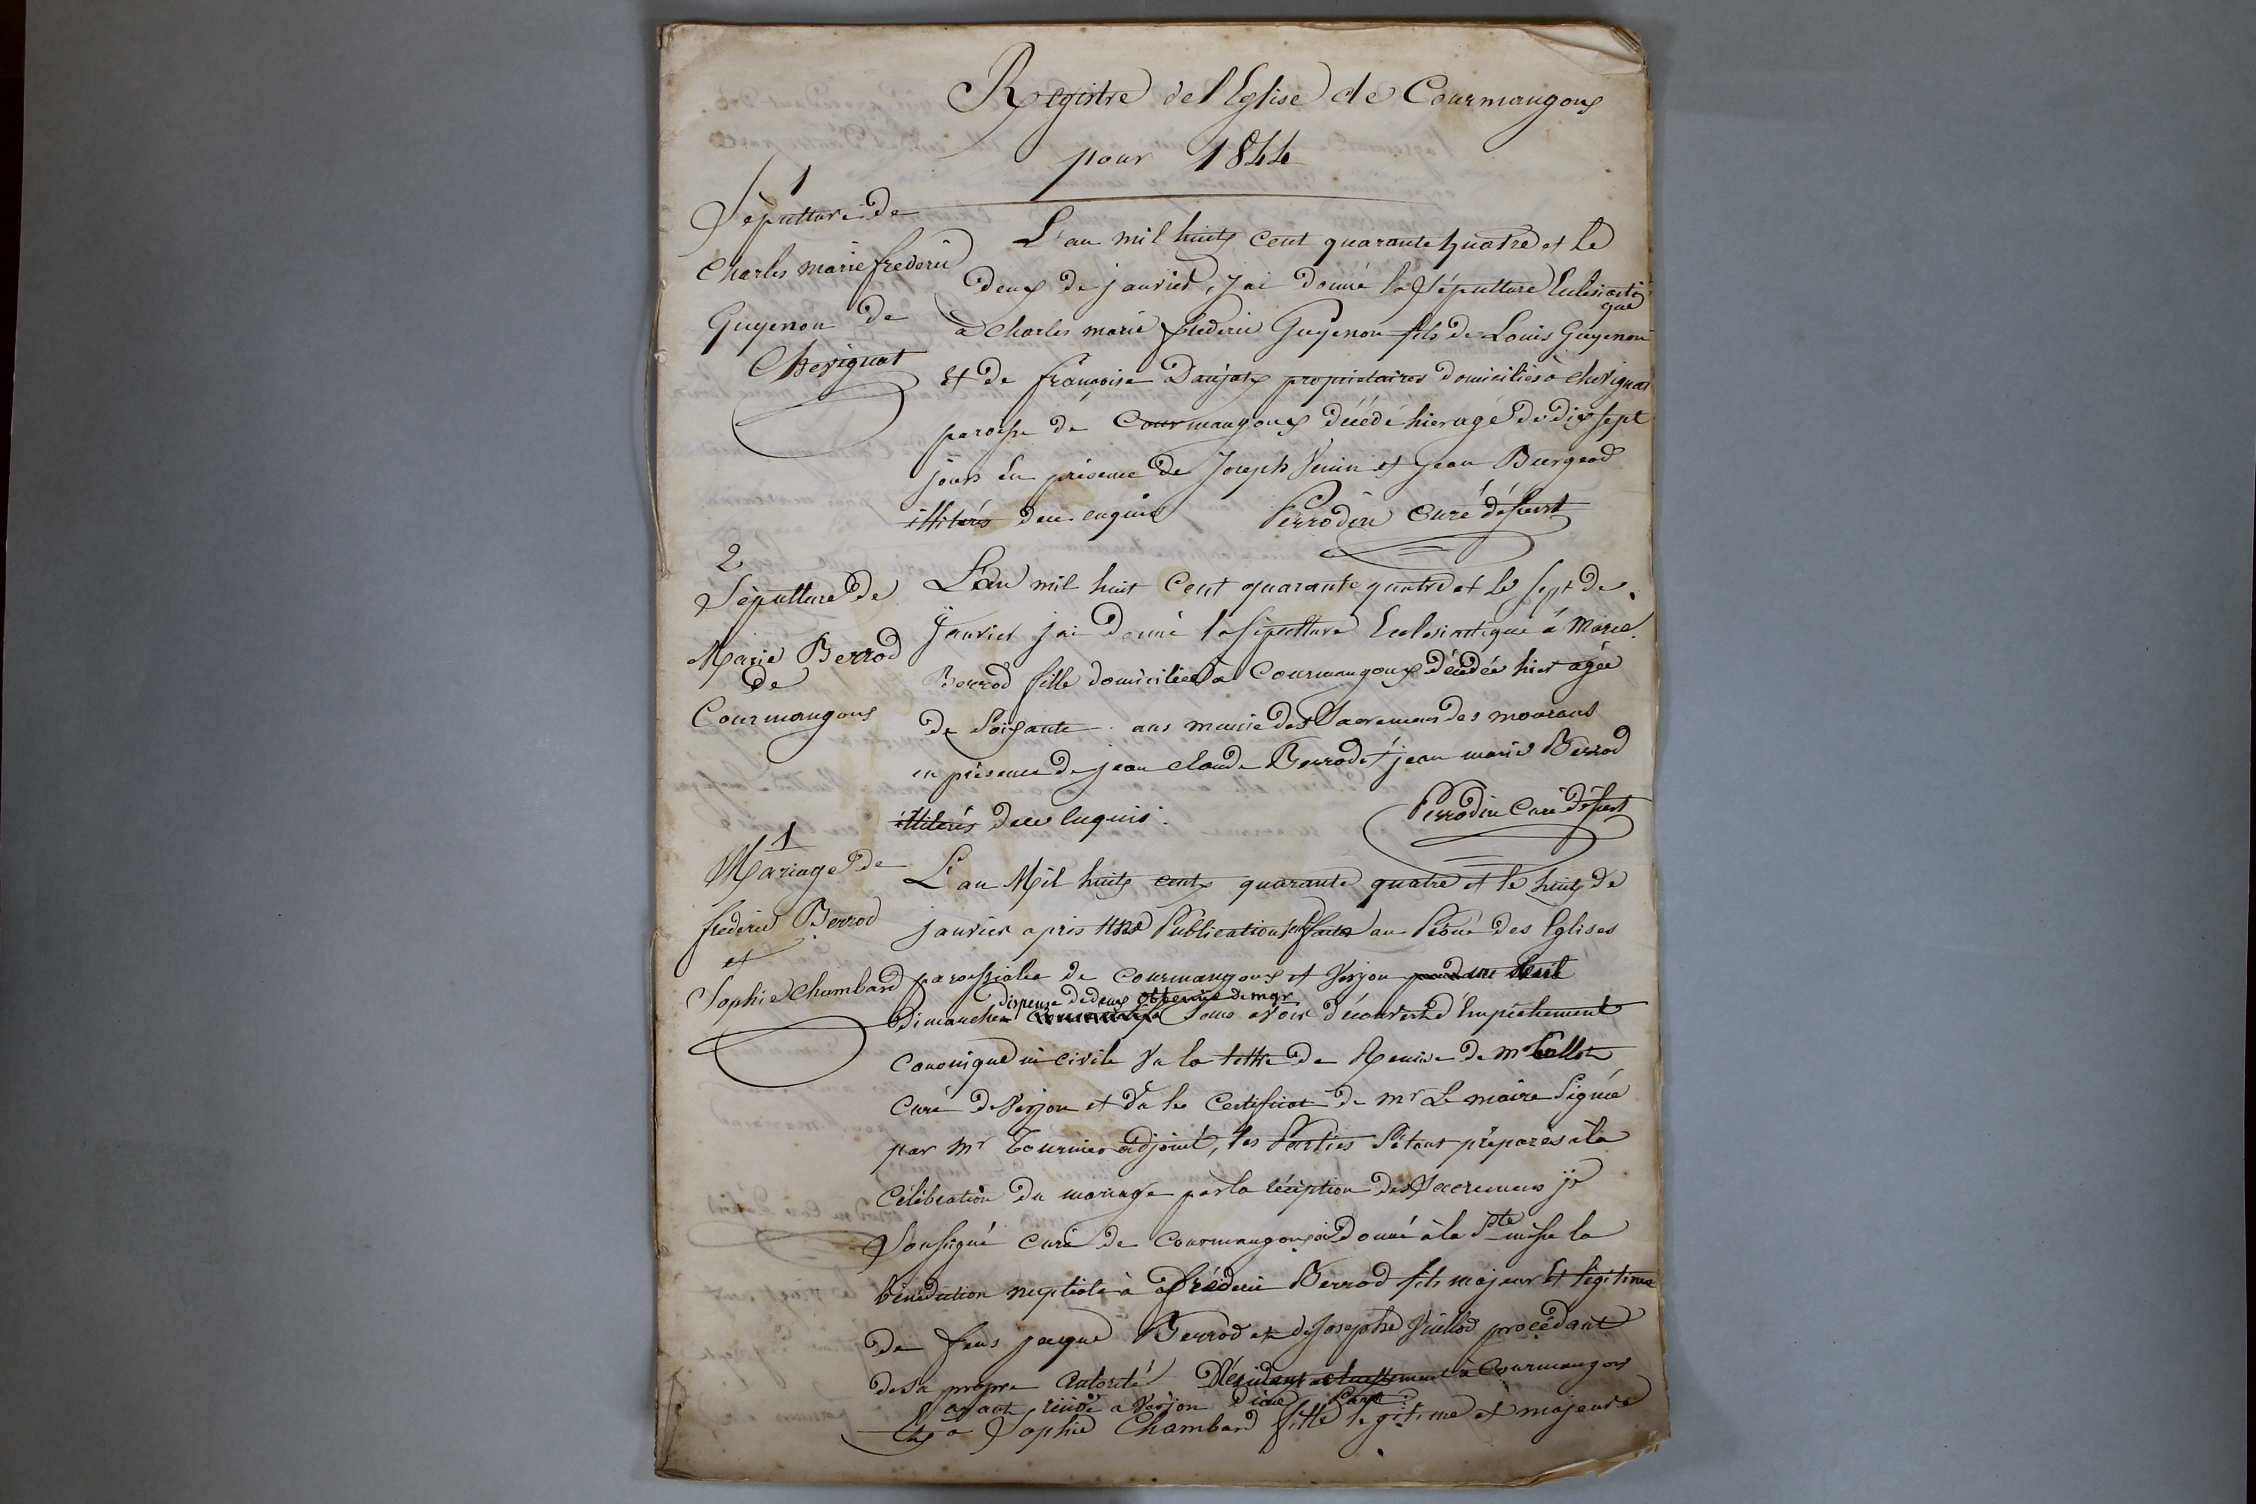 Registre de l'Eglise de Courmangoux
pour 1844
1
Sépulture de
Charles marie frederic
Guyenon de
Chevignat
L'an mil huit cent quarante quatre et le
deux de janvier, j'ai donné la sépulture Eclesiasti
que
à Charles marie frederic Guyenon fils de Louis Guyenon
et de françoise Daujat propriétaires domiciliés à chevignat
paroisse de Courmangoux décédé hier agé de dix sept
jours en présence de Joseph Venin et jean Burgeod
illitérés de ce enquis Perrodin Curé désservt
2
Sépulture de
Marie Berrod
de
Courmangoux
L'an mil huit Cent quarante quatre et le sept de
janvier j'ai donné la sépulture Eclesiastique à Marie
Berrod fille domiciliée à Courmangoux décédée hier agée
de Soixante ans munie des Sacremens des mourans
en présence de jean claude Berrod et jean marie Berrod
illitérés de ce enquis. Perrodin Curé désservt
1
Mariage de
frederic Berrod
et
Sophie Chambard
L'an Mil huit cent quarante quatre et le huit de
janvier après une Publication faite au Prône des Eglises
paroissiales de Courmangoux et Verjon
dispense de deux obtenue de mgr
Dimanche Sans avoir découvert d'Empéchement
Canonique ni civile Vu la lettre de Remise de mr
Curé de Verjon et Vu le Certificat de mr Le maire Signé
par mr Tournier adjoint, les Parties s'étant préparés à la
Célébration du mariage par la réception des Sacremens je
Soussigné curé de Courmangoux ai donné à la Ste messe la
bénédiction nuptiale à frédéric Berrod fils majeur et légitime
de feus jacque Berrod et de Josephe Vuillod procédant
de sa propre autorité Résidant actuellement à Courmangoux
ayant résidé a Verjon
Et à Sophie Chambard fille légitime et majeure